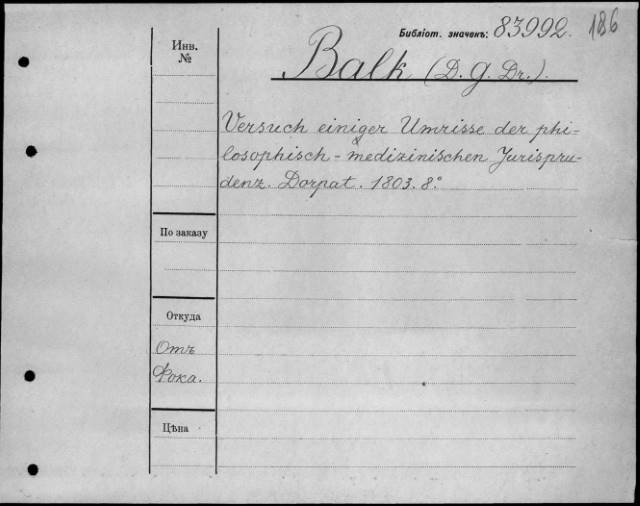 Библіот. значенѣ: 83992. 186
Инв. №
Balk (D. G. Dr.).
Versuch einiger Umrisse der phi-
losophisch-medizinischen Jurispru-
denz. Dorpat. 1803. 8.°
По заказу
Откуда
Отъ
Фока.
Цѣна